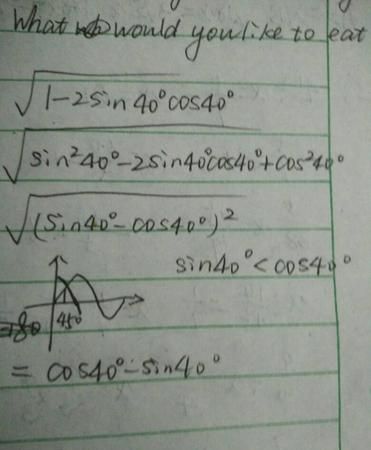 What would you like to eat
√1-2sin40°cos40°
√sin²40°-2sin40°cos40°+cos²40°
√(sin40°-cos40°)²
sin40°<cos40°
45°
= cos40°-sin40°